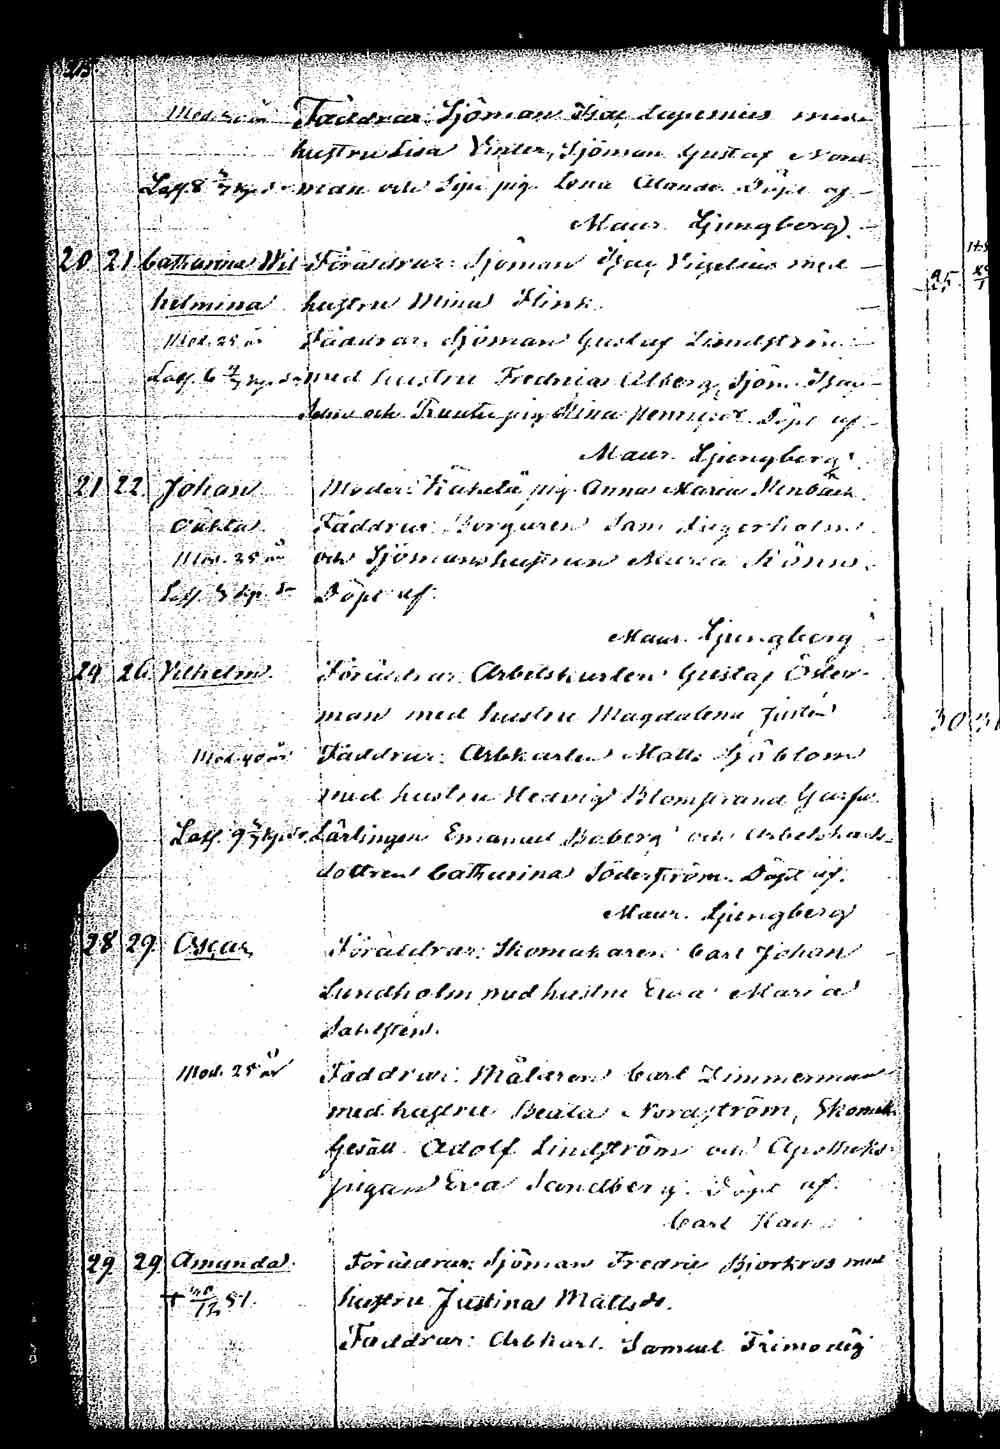 Mod. år Fäddrar: Sjöman Isac Lapenius med
hustru Lisa Vinter, Sjöman Gustaf Nord-
man och pig. Lena Döpt af
Maur. Ljungberg.
20 21 Catharina Wil- Föräldrar: Sjöman Isac Vigelius med
helmina hustru Mina Flink.
Mod. 25 år Fäddrar: Sjöman Gustaf Lindström
med hustru Fredrica Alberg, Sjöm. Isac
och pig Stina Döpt af
Maur. Ljungberg
21 22 Johan Moder: pig. Anna Maria Stenbäck
Oäkta. Fäddrar: Borgaren Sam Lagerholm
Mod. 25 år och Sjömanshustrun Maria
Döpt af
Maur. Ljungberg
24 26 Vilhelm. Föräldrar: Arbetskarlen Gustaf Öster-
man med hustru Magdalena
Mod. 40 år Fäddrar: Arbkarlen Matts Sjöblom
med hustru Hedvig Blomstrand
Lärlingen Emanuel Boberg och
dottren Catharina Söderström. Döpt af.
Maur. Ljungberg
28 29 Oscar Föräldrar: Skomakaren Carl Johan
Lundholm med hustru Eva Maria
Sahlsten.
Mod. 25 år Fäddrar: Målaren Carl Zimmerman
med hustru Beata Nordström, Skomak.
Gesäll Adolf Lindström och Apotheks-
pigan Eva Sandberg. Döpt af
Carl
29 29 Amanda. Föräldrar: Sjöman Fredric Björkros med
51. hustru Justina Mattsdr.
Fäddrar: Arbkarl. Samuel Frimodig
25
30 31